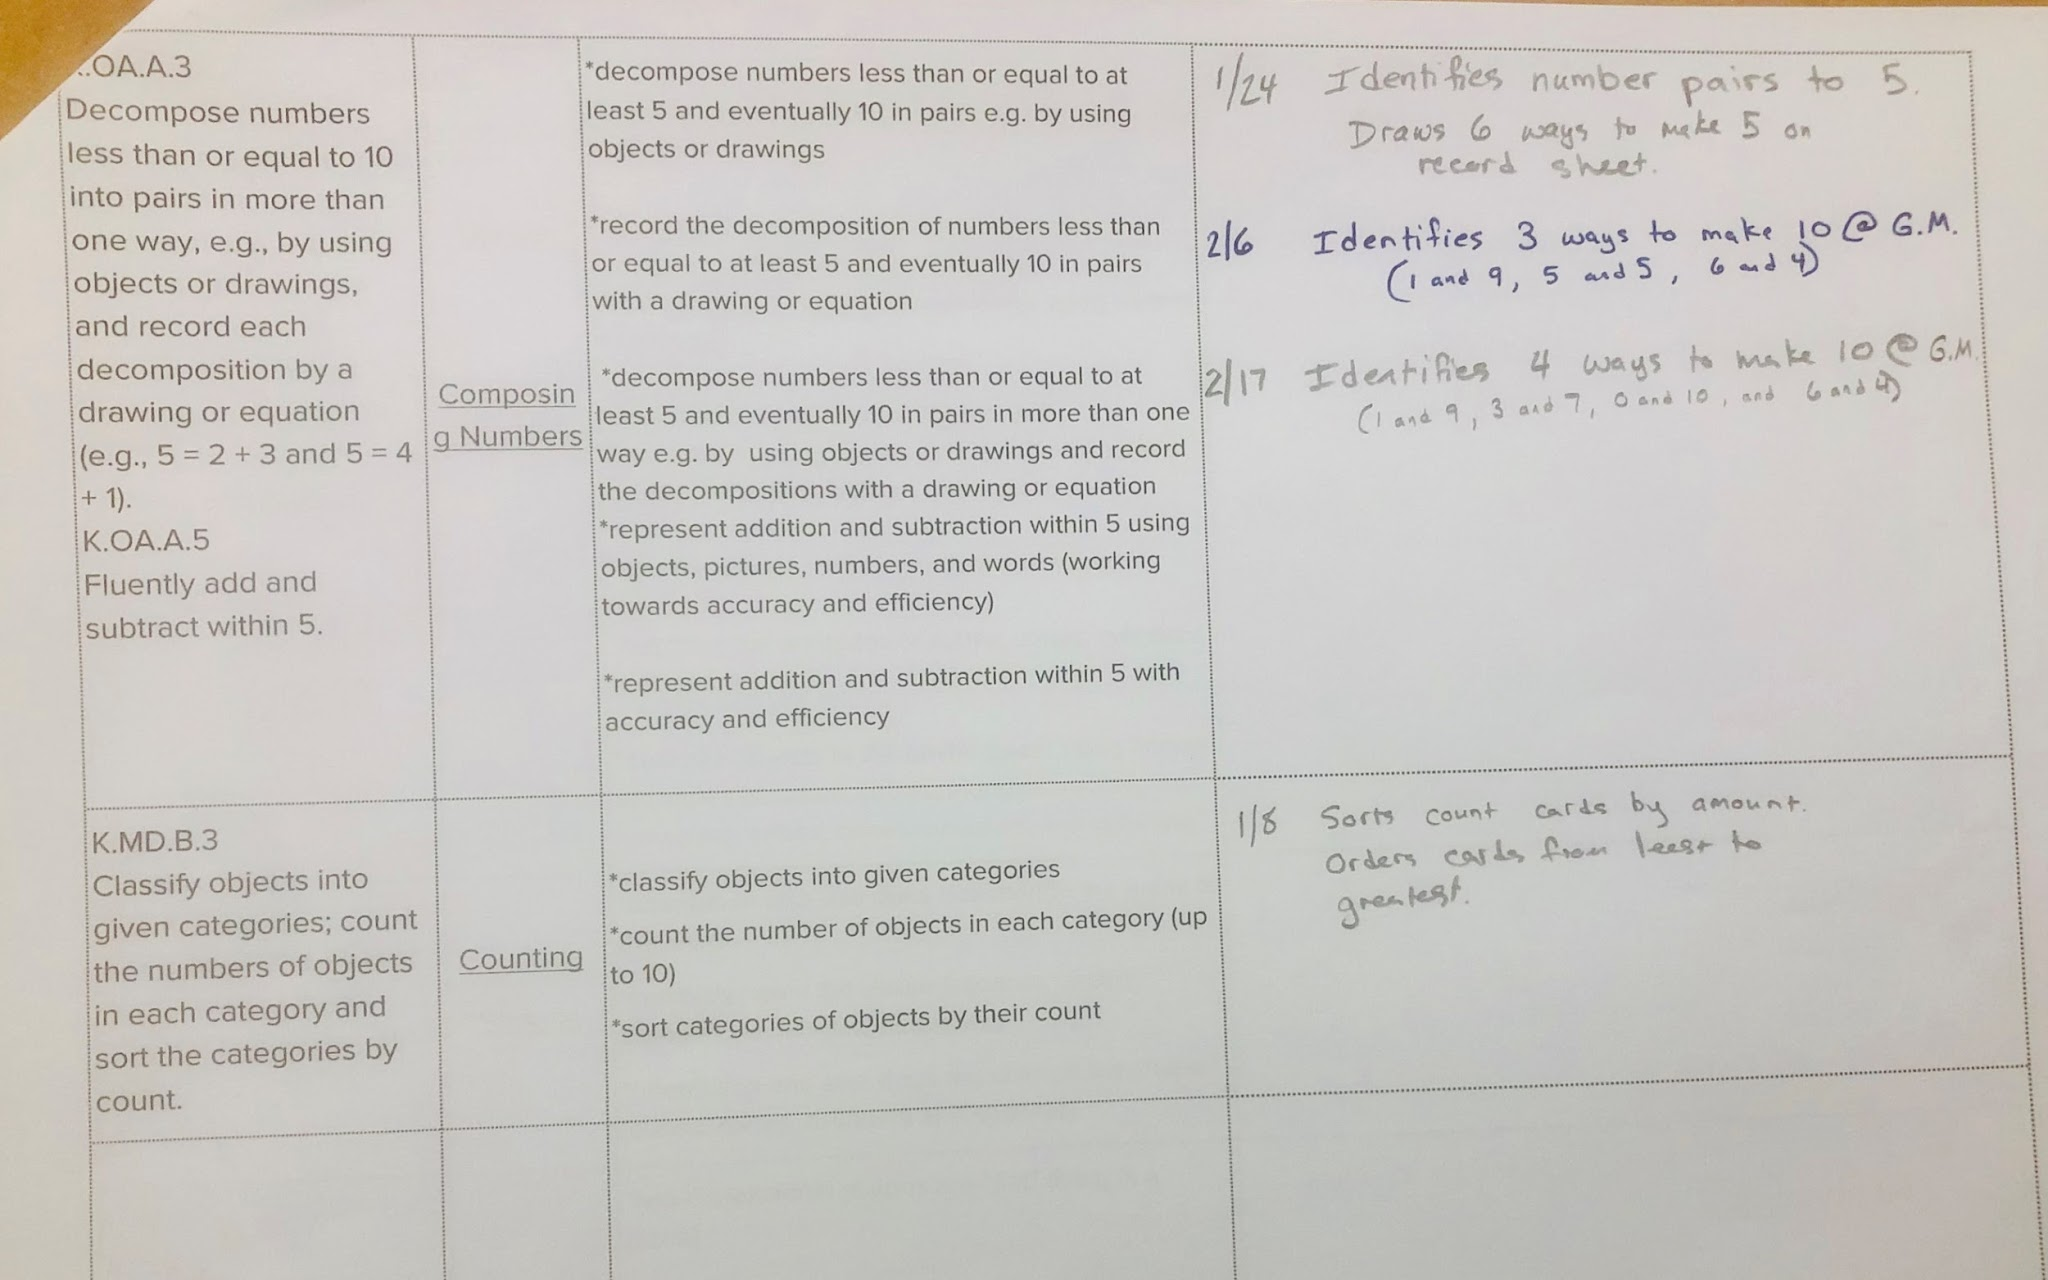 .OA.A.3
Decompose numbers
less than or equal to 10
into pairs in more than
one way, e.g., by using
objects or drawings,
and record each
decomposition by a
drawing or equation
(e.g., 5 = 2 + 3 and 5 = 4
+ 1).
K.OA.A.5
Fluently add and
subtract within 5.
Composin
g Numbers
*decompose numbers less than or equal to at
least 5 and eventually 10 in pairs e.g. by using
objects or drawings
*record the decomposition of numbers less than
or equal to at least 5 and eventually 10 in pairs
with a drawing or equation
*decompose numbers less than or equal to at
least 5 and eventually 10 in pairs in more than one
way e.g. by using objects or drawings and record
the decompositions with a drawing or equation
*represent addition and subtraction within 5 using
objects, pictures, numbers, and words (working
towards accuracy and efficiency)
*represent addition and subtraction within 5 with
accuracy and efficiency
1/24 Identifies number pairs to 5.
Draws 6 ways to make 5 on
record sheet.
2/6 Identifies 3 ways to make 10 @ G.M.
(1 and 9, 5 and 5, 6 and 4)
2/17 Identifies 4 ways to make 10 @ G.M.
(1 and 9, 3 and 7, 0 and 10, and 6 and 4)
K.MD.B.3
Classify objects into
given categories; count
the numbers of objects
in each category and
sort the categories by
count.
Counting
*classify objects into given categories
*count the number of objects in each category (up
to 10)
*sort categories of objects by their count
1/8 Sorts count cards by amount.
Orders cards from least to
greatest.